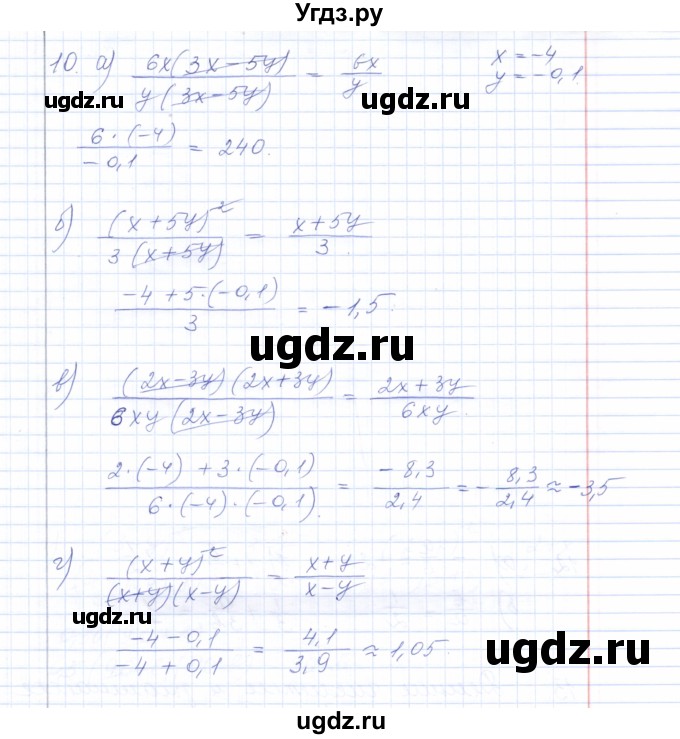 Угдз.ру
10. а) 6x(3x-5y) / y(3x-5y) = 6x / y x=-4
y=-0,1.
ugdz.ru ugdz.ru
6·(-4) / -0,1 = 240.
б) (x+5y)² / 3(x+5y) = x+5y / 3.
-4+5·(-0,1) / 3 = -1,5.
ugdz.ru
в) (2x-3y)(2x+3y) / 6xy(2x-3y) = 2x+3y / 6xy.
2·(-4)+3·(-0,1) / 6·(-4)·(-0,1). = -8,3 / 2,4 = -8,3 / 2,4 ≈ -3,5
г) (x+y)² / (x+y)(x-y) = x+y / x-y
ugdz.ru ugdz.ru
-4-0,1 / -4+0,1 = 4,1 / 3,9 ≈ 1,05.
ugdz.ru
ugdz.ru